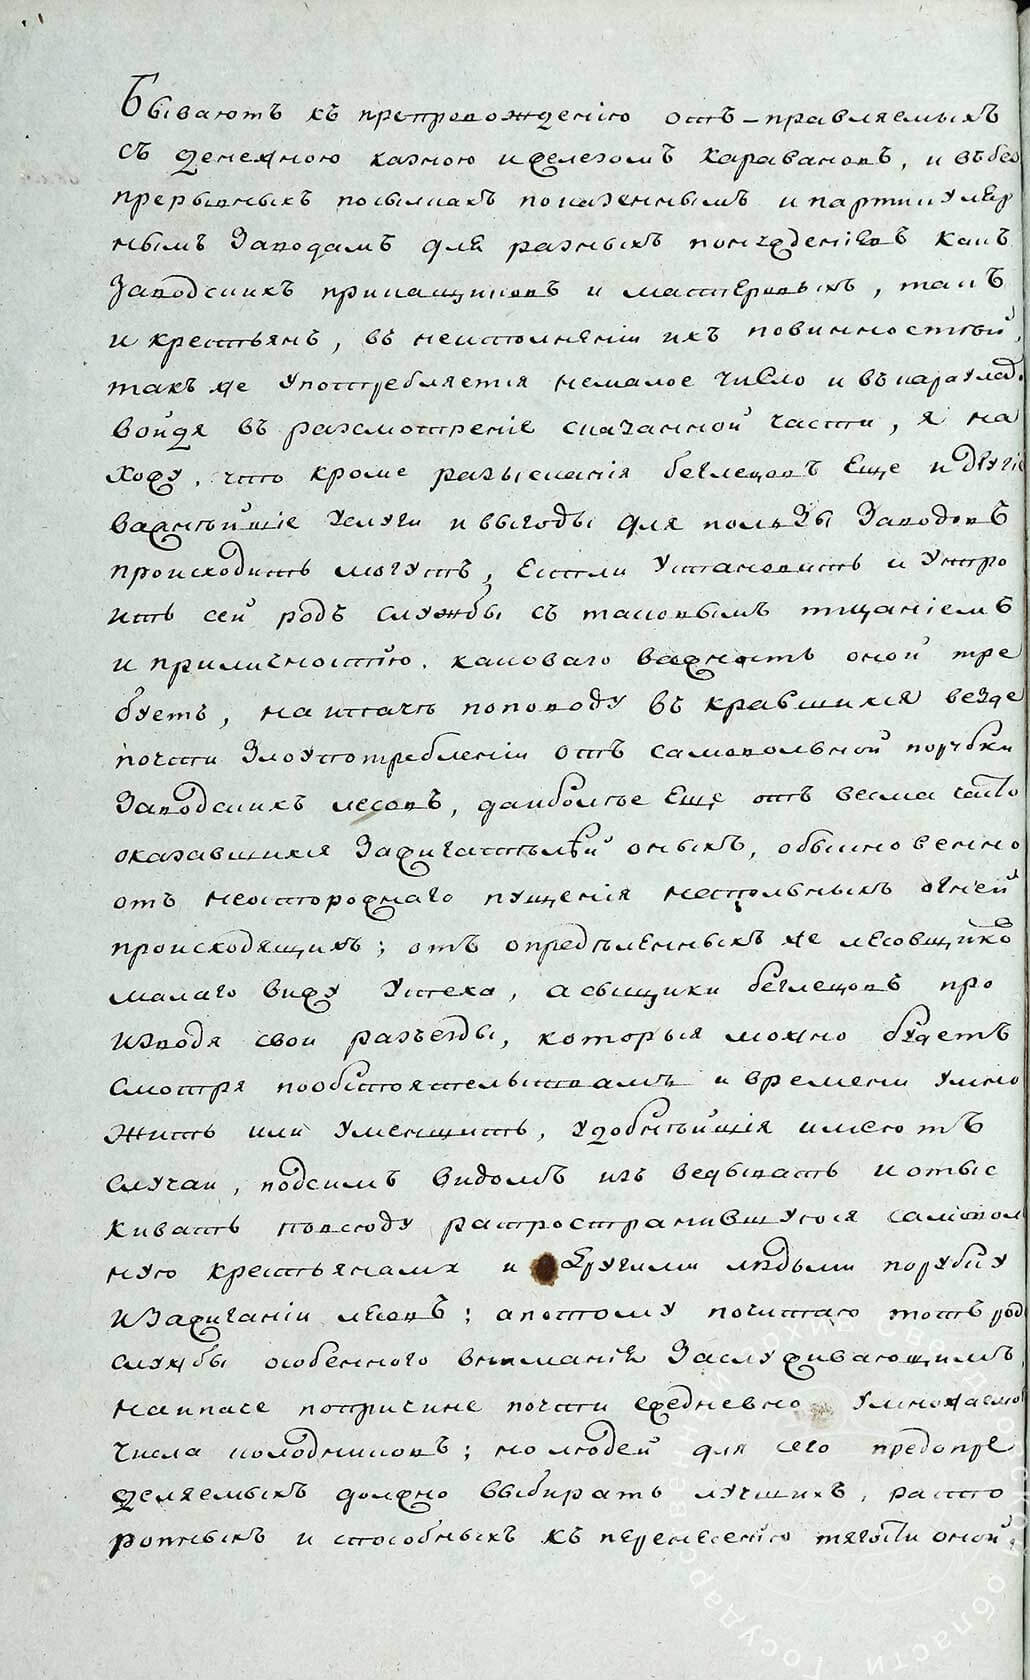 Бываютъ къ препровожденію отъ-правляемыхъ
съ денежною казною и железомъ каравановъ, и въ без
прерывныхъ посылкахъ по казеннымъ и партикуляр
нымъ Заводамъ для разныхъ понужденіевъ какъ
Заводскихъ прикащиковъ и мастеровыхъ, такъ
и крестьянъ, въ неисполненіи ихъ повинностей,
такъ же употребляется немалое число и въ караулах.
Войдя въ разсмотреніе сказанной части, я на
хожу, что кроме разысканія беглецовъ еще и другіе
важнѣйшіе услуги и выгоды для пользы Заводовъ
происходить могутъ, Естли установить и устро
ить сей родъ службы съ таковымъ тщаніемъ
и приличностію, каковаго важность оной тре
буетъ, наипаче по поводу вкравшихся везде
почти Злоупотребленіи отъ самовольной порубки
Заводскихъ лесовъ, да и болѣе Еще отъ весма часто
оказавшихся Зажигательствъ оныхъ, обыкновенно
отъ неосторожнаго пущенія несполныхъ огней
происходящихъ; отъ опредѣленныхъ же лесовщиковъ
малаго вижу успеха, а сыщики беглецовъ про
изводя свои разъезды, которыя можно будетъ
смотря по обстоятельствамъ и времени умно
жить или уменшить, удобнѣйшія имеютъ
случаи, подсимъ видомъ изъ ведывать и отыс
кивать повсюду распространившуюся самовол
ную крестьянами и другими людьми порубку
и Зажиганіи лесовъ; а потому почитаю тотъ родъ
службы особенного вниманія Заслуживающимъ,
наипаче по причине почти ежедневно умножаемого
числа колодниковъ; но людей для сего предопре
деляемыхъ должно выбирать лучшихъ, расто
ропныхъ и способныхъ къ перенесенію тягости оной,
Государственный архив Свердловской области